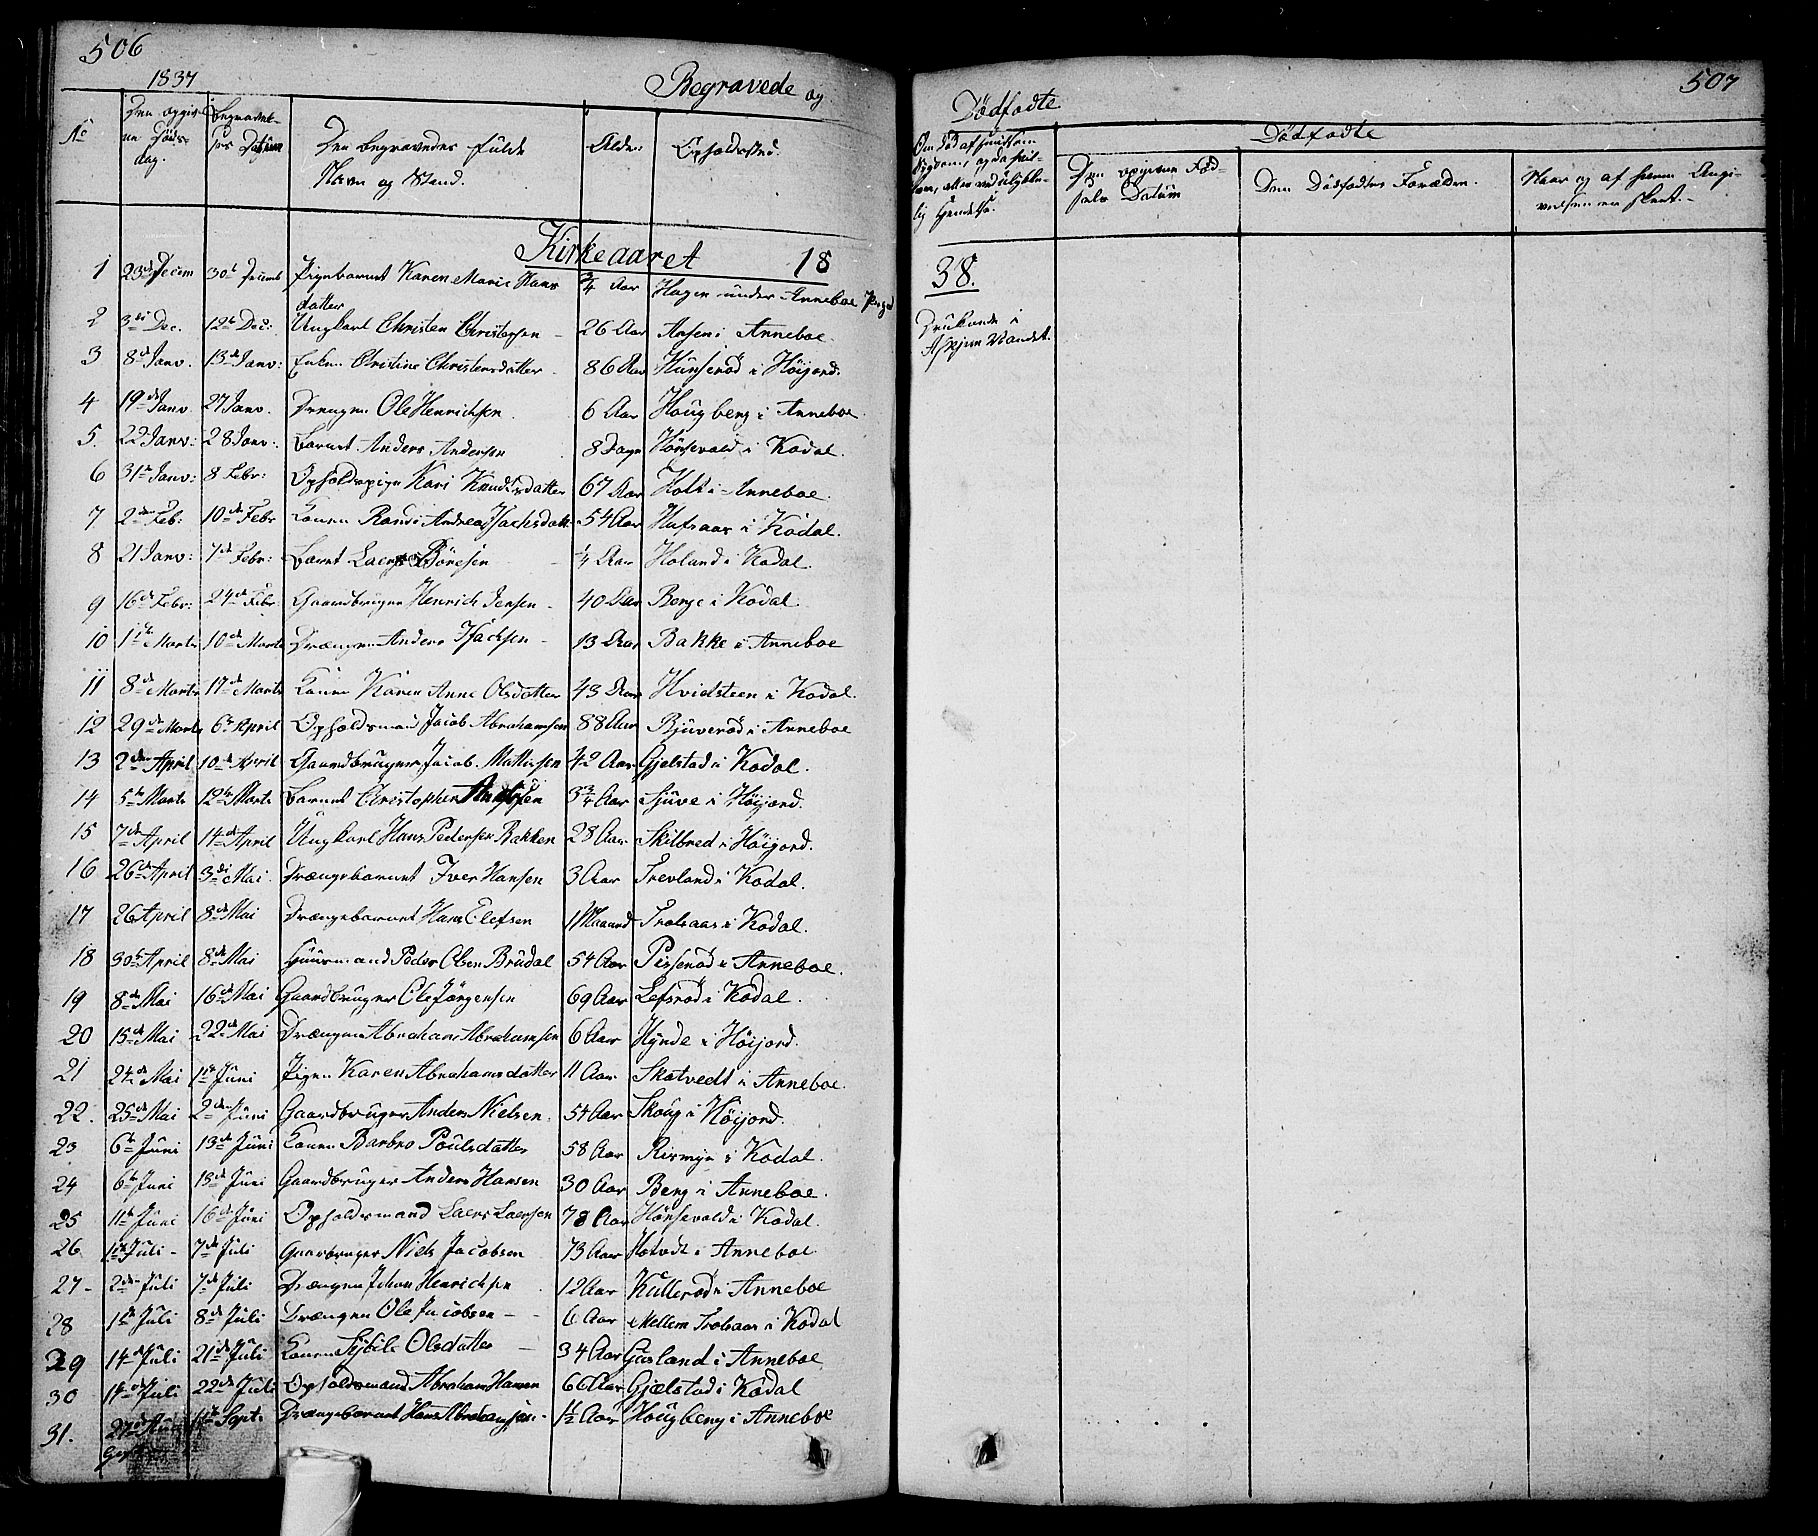 506
1837
Begravede og
No
Den opgivne Døds-dag.
Begravelses Datum
Den begravedes fulde Navn og Stand.
Alder
Opholdssted.
Kirkeaaret 18
1 23de Decem 30te Decemb Pigebarnet Karen Marie Hansdatter 3/4 Aar Hagen under Anneboe
2 3die Dec. 12te Dec: Ungkarl Christen Christensen 26 Aar Aasen i Anneboe.
3 8de Janv. 13de Janv: Enken Christine Christensdatter 86 Aar Hunserød i Höijord.
4 19de Janv 27 Janv. Drengen Ole Henrichsen 6 Aar Hougberg i Anneboe
5. 22 Janv: 28 Janv: Barnet Anders Andersen 8 Dage Hönsevald i Kodal.
6 31te Janv: 8 Febr: Opholdspige Kari Knudtsdatter 67 Aar Holt i Anneboe.
7 2den Feb: 10de Febr Konen Randi Andrea Isachsdatt 54 Aar Hafsaas i Kodal.
8 21 Janv: 7de Febr: Barnet Laers Börresen 1/4 Aar Holand i Kodal.
9 16de Febr: 24de Febr: Gaardbruger Henrich Jensen 40 Aar Berge i Kodal.
10 1ste Marts 10de Marts Drængen Anders Isachsen 13 Aar Bakke i Anneboe
11 8de Marts 17de Marts Konen Karen Anne Olsdatter 43 Aar Hvidsteen i Kodal.
12 29de Marts 6te April Opholdsmand Jacob Abrahamsen 88 Aar Bjuerød i Anneboe
13 2den April 10de April Gaardbruger Jacob Mathisen 42 Aar Gjelstad i Kodal.
14 5te Marts 12te Marts Barnet Christopher 3 3/4 Aar Sjuve i Höijord.
15 7de April 14de April Ungkarl Hans Pedersen Bakken 28 Aar Skilbred i Höijord.
16 26de April 3die Mai. Drængebarnet Iver Hansen 3 Aar Trevland i Kodal.
17 26 April 8de Mai Drængebarnet Hans Elefsen 1 Maaned Trolsaas i Kodal.
18 30te April 8de Mai Huusmand Peder Olsen Brudal 54 Aar Pisserød i Anneboe.
19 8de Mai 16de Mai Gaardbruger Ole Jörgensen 69 Aar Lefsrød i Kodal.
20 15de Mai 22de Mai Drængen Abraham Abrahamsen 6 Aar Hynde i Höijord.
21 24de Mai 1ste Juni Pigen Karen Abrahamsdatter 11 Aar Skatvedt i Anneboe.
22. 25de Mai 2den Juni Gaardbruger Anders Nielsen. 54 Aar Skoug i Höijord.
23 6te Juni 13de Juni Konen Barbro Poulsdatter 58 Aar Rismyr i Kodal.
24 6te Juni 13de Juni Gaardbruger Anders Hansen 30 Aar Berg i Anneboe.
25 11te Juni 16de Juni Opholdsmand Laers Laersen 78 Aar Hönsevald i Kodal.
26 1ste Juli 7de Juli Gaardbruger Niels Jacobsen 73 Aar Hotvedt i Anneboe
27 2den Juli 7de Juli Drængen Johan Henrichsen 12 Aar Kullerød i Anneboe
28 1ste Juli 8de Juli Drængen Ole Jacobsen 6 Aar Mellem Trolsaas i Kodal
29 14de Juli 21de Juli Konen Sybile Olsdatter 34 Aar Gusland i Anneboe
30 14de Juli 22de Juli Opholdsmand Abraham Hansen 60 Aar Gjælstad i Kodal
31. 27de Aug 11te Sept. Drængebarnet Hans Abrahamsen 1 1/2 Aar Hougberg i Anneboe
507
Dödfödte
Om död af smitsom Sygdom, og da hvilken, eller ved ulykkelig Hendelse.
Dödfödte
Den opgivne Födsels Datum
Den Dödfödtes Forældre.
Naar og af hvem Angivelsen er skeet.
38.
Druknede i Askjem Vandet.